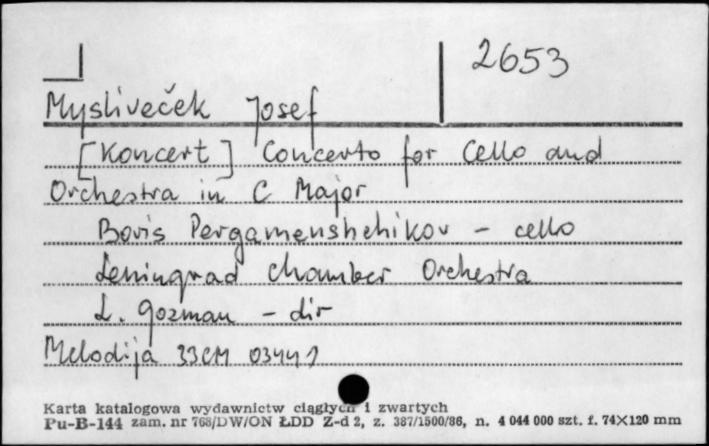 2653
Mysliveček Josef
[Koncert] Concerto for Cello and
Orchestra in C Major
Boris Pergamenshchikov - cello
Leningrad Chamber Orchestra
L. Gozman - dir
Melodija 33CM 03441
Karta katalogowa wydawnictw ciągłych i zwartych
Pu-B-144 zam. nr 768/DW/ON ŁDD Z-d 2, z. 387/1500/86, n. 4 044 000 szt. f. 74×120 mm